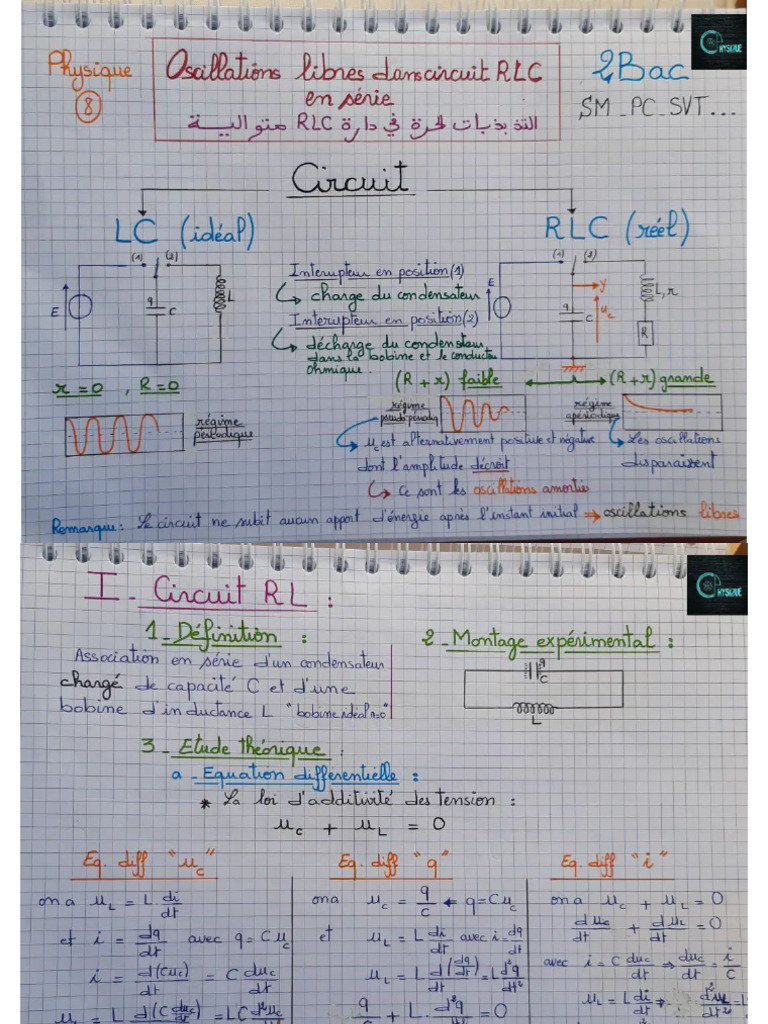 Physique
8
Oscillations libres dans circuit RLC
en série
التذبذبات الحرة في دارة RLC متوالية
2Bac
SM_PC_SVT...
PHYSIQUE
Circuit
LC (idéal)
RLC (réel)
(1) (2)
E
q
C
L
Interupteur en position(1)
charge du condensateur
Interupteur en position(2)
décharge du condensateur
dans la bobine et le conducteur
ohmique.
(1) (2)
E
y
q
C
uc
L,r
R
r=0 , R=0
(R+r) faible
(R+r) grande
régime
périodique
régime
pseudo-périodiq
régime
apériodique
uc est alternativement positive et négative
dont l'amplitude décroît
Ce sont les oscillations amorties
Les oscillations
disparaissent
Remarque: Le circuit ne subit aucun apport d'énergie après l'instant initial ⇒ oscillations libres
PHYSIQUE
I - Circuit RL :
1 - Définition :
Association en série d'un condensateur
chargé de capacité C et d'une
bobine d'inductance L "bobine idéal r=0"
2 - Montage expérimental :
q
C
L
3 - Etude théorique :
a - Equation différentielle :
* La loi d'additivité des tension :
uc + uL = 0
Eq. diff "uc"
on a uL = L di/dt
et i = dq/dt avec q = Cuc
i = d(Cuc)/dt = C duc/dt
Eq. diff "q"
on a uc = q/C ← q=Cuc
et uL = L di/dt avec i = dq/dt
uL = L d(dq/dt)/dt = L d²q/dt²
q/C + L. d²q/dt² = 0
Eq. diff "i"
on a uc + uL = 0
duc/dt + duL/dt = 0
avec i = C duc/dt ⇒ duc/dt = i/C
uL = L di/dt ⇒